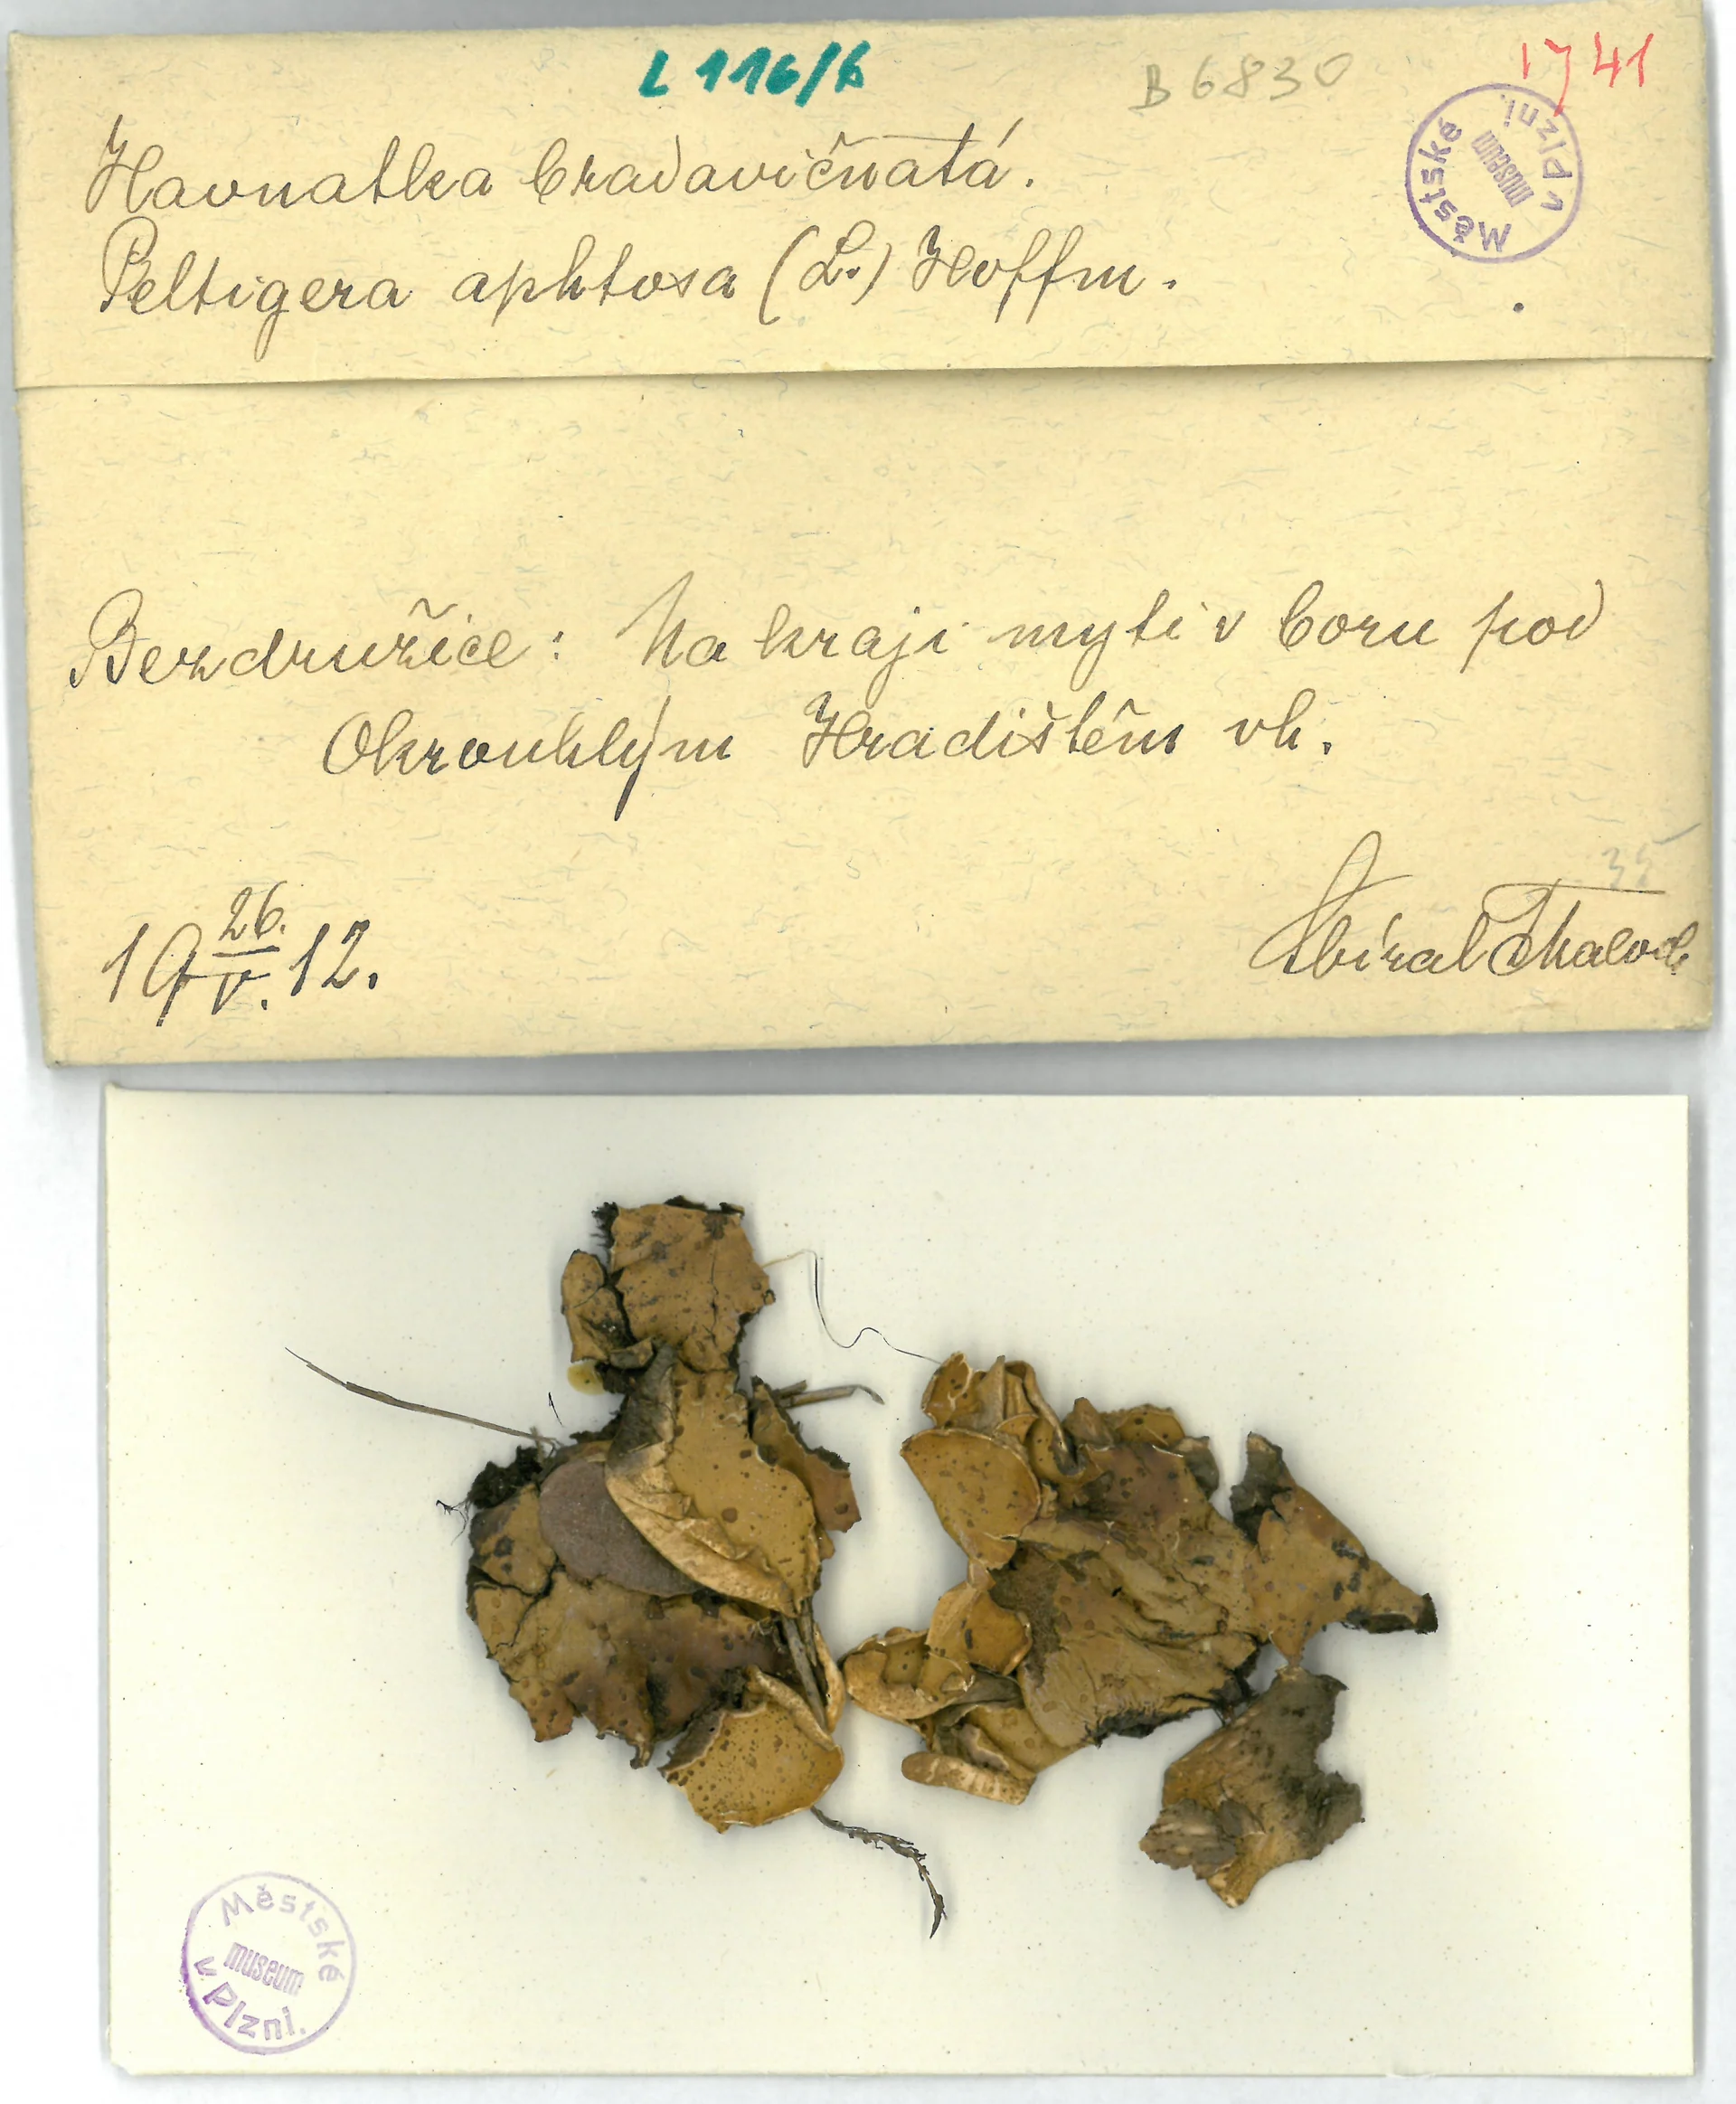 L 116/6
B 6830
1741
Městské museum v Plzni.
Havnatka bradavičnatá.
Peltigera aphtosa (L.) Hoffm.
Bezdružice: Na kraji mýti v boru pod
Okrouhlým Hradištěm vh.
35
19 26./V. 12.
Sbíral
Městské
museum
v Plzni.